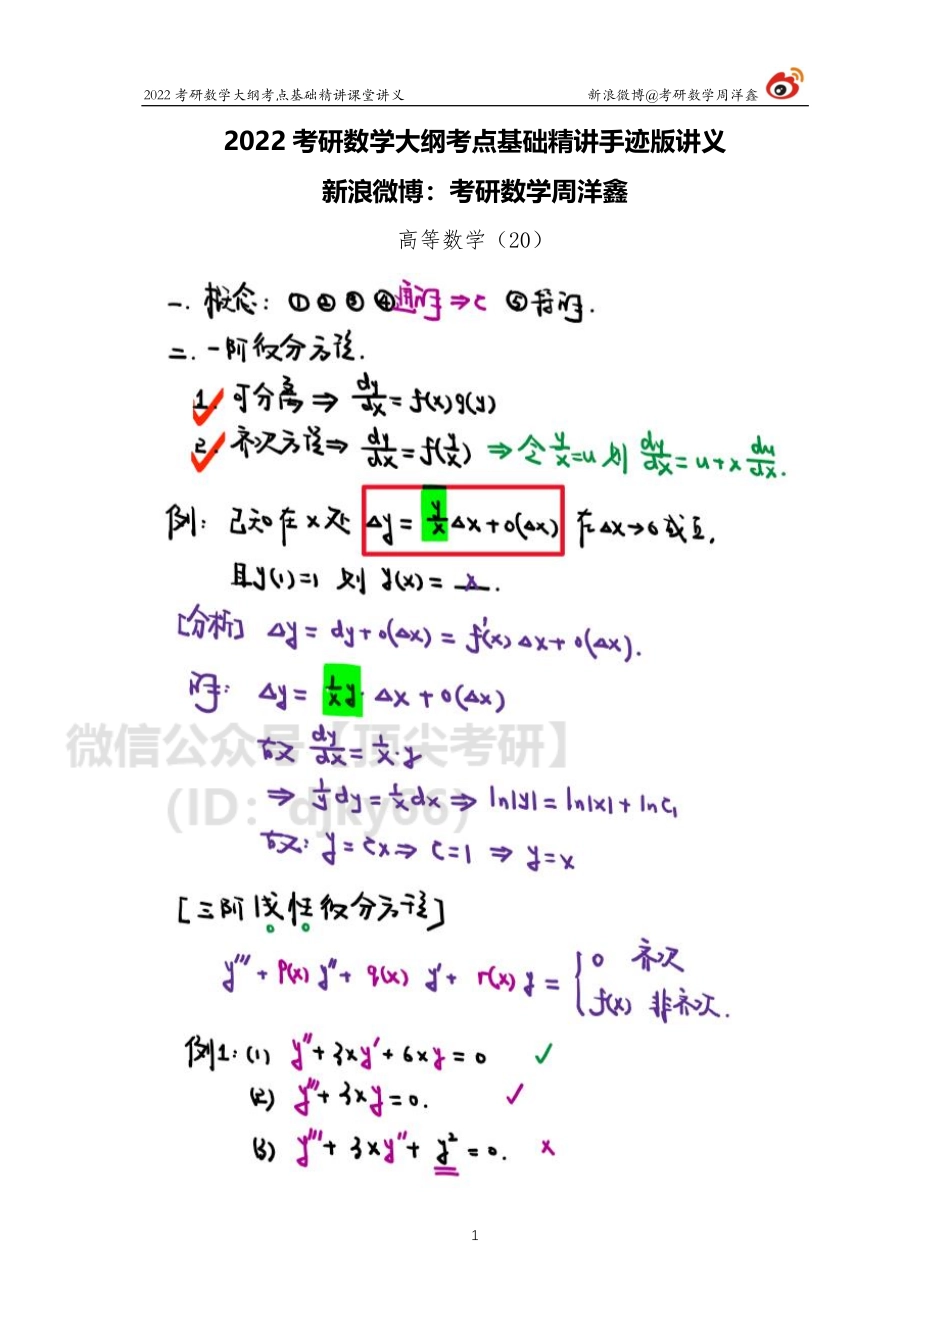 2022 考研数学大纲考点基础精讲课堂讲义 新浪微博@考研数学周洋鑫
2022 考研数学大纲考点基础精讲手迹版讲义
新浪微博：考研数学周洋鑫
高等数学（20）
一. 概念: ① ② ③ ④通解⇒c ⑤特解.
二. 一阶微分方程.
1. 可分离 ⇒ dy/dx = f(x)g(y)
2. 齐次方程⇒ dy/dx = f(y/x) ⇒ 令 y/x=u 则 dy/dx = u+x du/dx.
例: 已知在x处 Δy = y/x Δx+o(Δx) 在Δx→0成立,
且y(1)=1 则 y(x) = x.
[分析] Δy = dy+o(Δx) = f'(x)Δx+o(Δx).
解: Δy = 1/x y· Δx + o(Δx)
故 dy/dx = 1/x·y
⇒ 1/y dy = 1/x dx ⇒ ln|y| = ln|x| + ln c₁
故: y = cx ⇒ c=1 ⇒ y=x
[三阶线性微分方程]
y''' + p(x) y'' + q(x) y' + r(x) y = { 0 齐次
f(x) 非齐次.
例1: (1) y''+3xy'+6xy = 0 ✓
(2) y'''+3xy=0. ✓
(3) y'''+3xy''+y² = 0. ×
微信公众号【顶尖考研】
(ID: djky66)
1